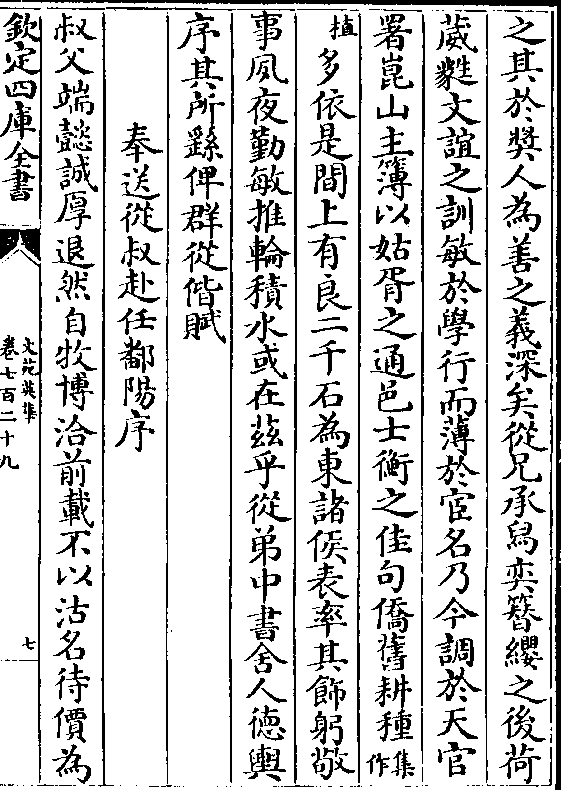 之其於奬人為善之義深矣從兄承舄奕簪纓之後荷
葳蕤文誼之訓敏於學行而薄於宦名乃今調於天官
署崑山主簿以姑胥之通邑士衡之佳句僑舊耕種集作
植多依是間上有良二千石為東諸侯表率其飾躬敬
事夙夜勤敏推輪積水或在茲乎從弟中書舍人德輿
序其所繇俾群從偕賦
奉送從叔赴任鄱陽序
叔父端懿誠厚退然自牧博洽前載不以沽名待價為
欽定四庫全書
文苑英華
卷七百二十九
七